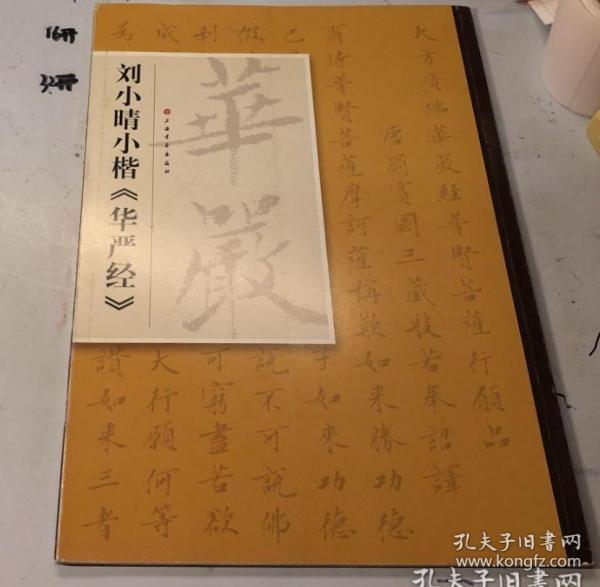 16开
32开
刘小晴小楷《华严经》
上海书画出版社
華嚴
大方廣佛華嚴經普賢菩薩行願品
唐罽賓國三藏般若奉詔譯
爾時普賢菩薩摩訶薩稱歎如來勝功德
已
子如來功德
假
說不可說佛
剎
可窮盡若欲
成
大行願何等
為
讚如來三者
孔夫子旧书网
www.kongfz.com
孔夫子旧书网